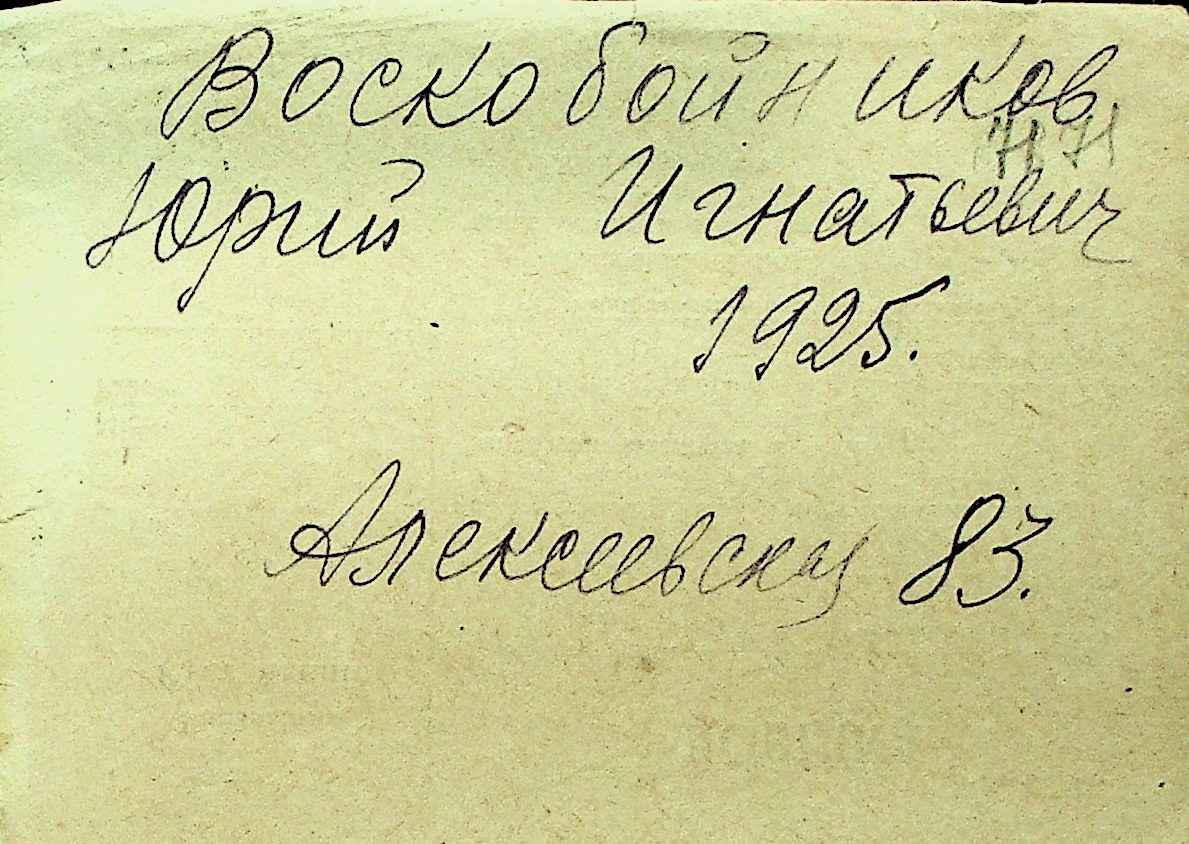 Воскобойников
Юрий Игнатьевич
1925.
Алексеевская 83.